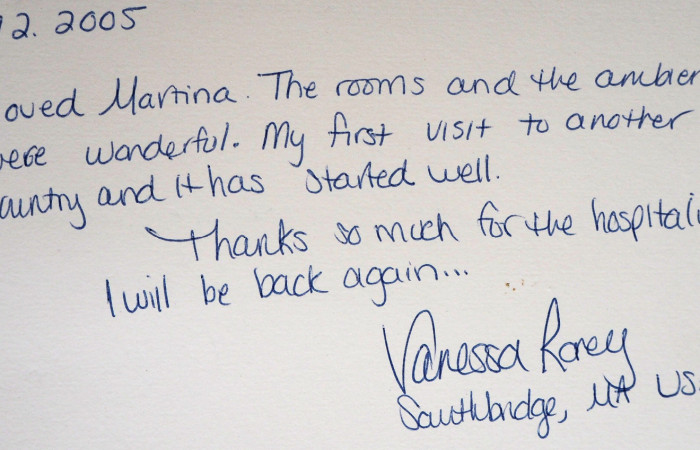 12. 2005
oved Martina. The rooms and the ambien
were wonderful. My first visit to another
ountry and it has started well.
Thanks so much for the hospitali
I will be back again...
Vanessa
Southbridge, MA US